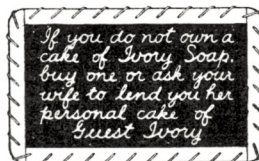 If you do not own a
cake of Ivory Soap,
buy one or ask your
wife to lend you her
personal cake of
Guest Ivory